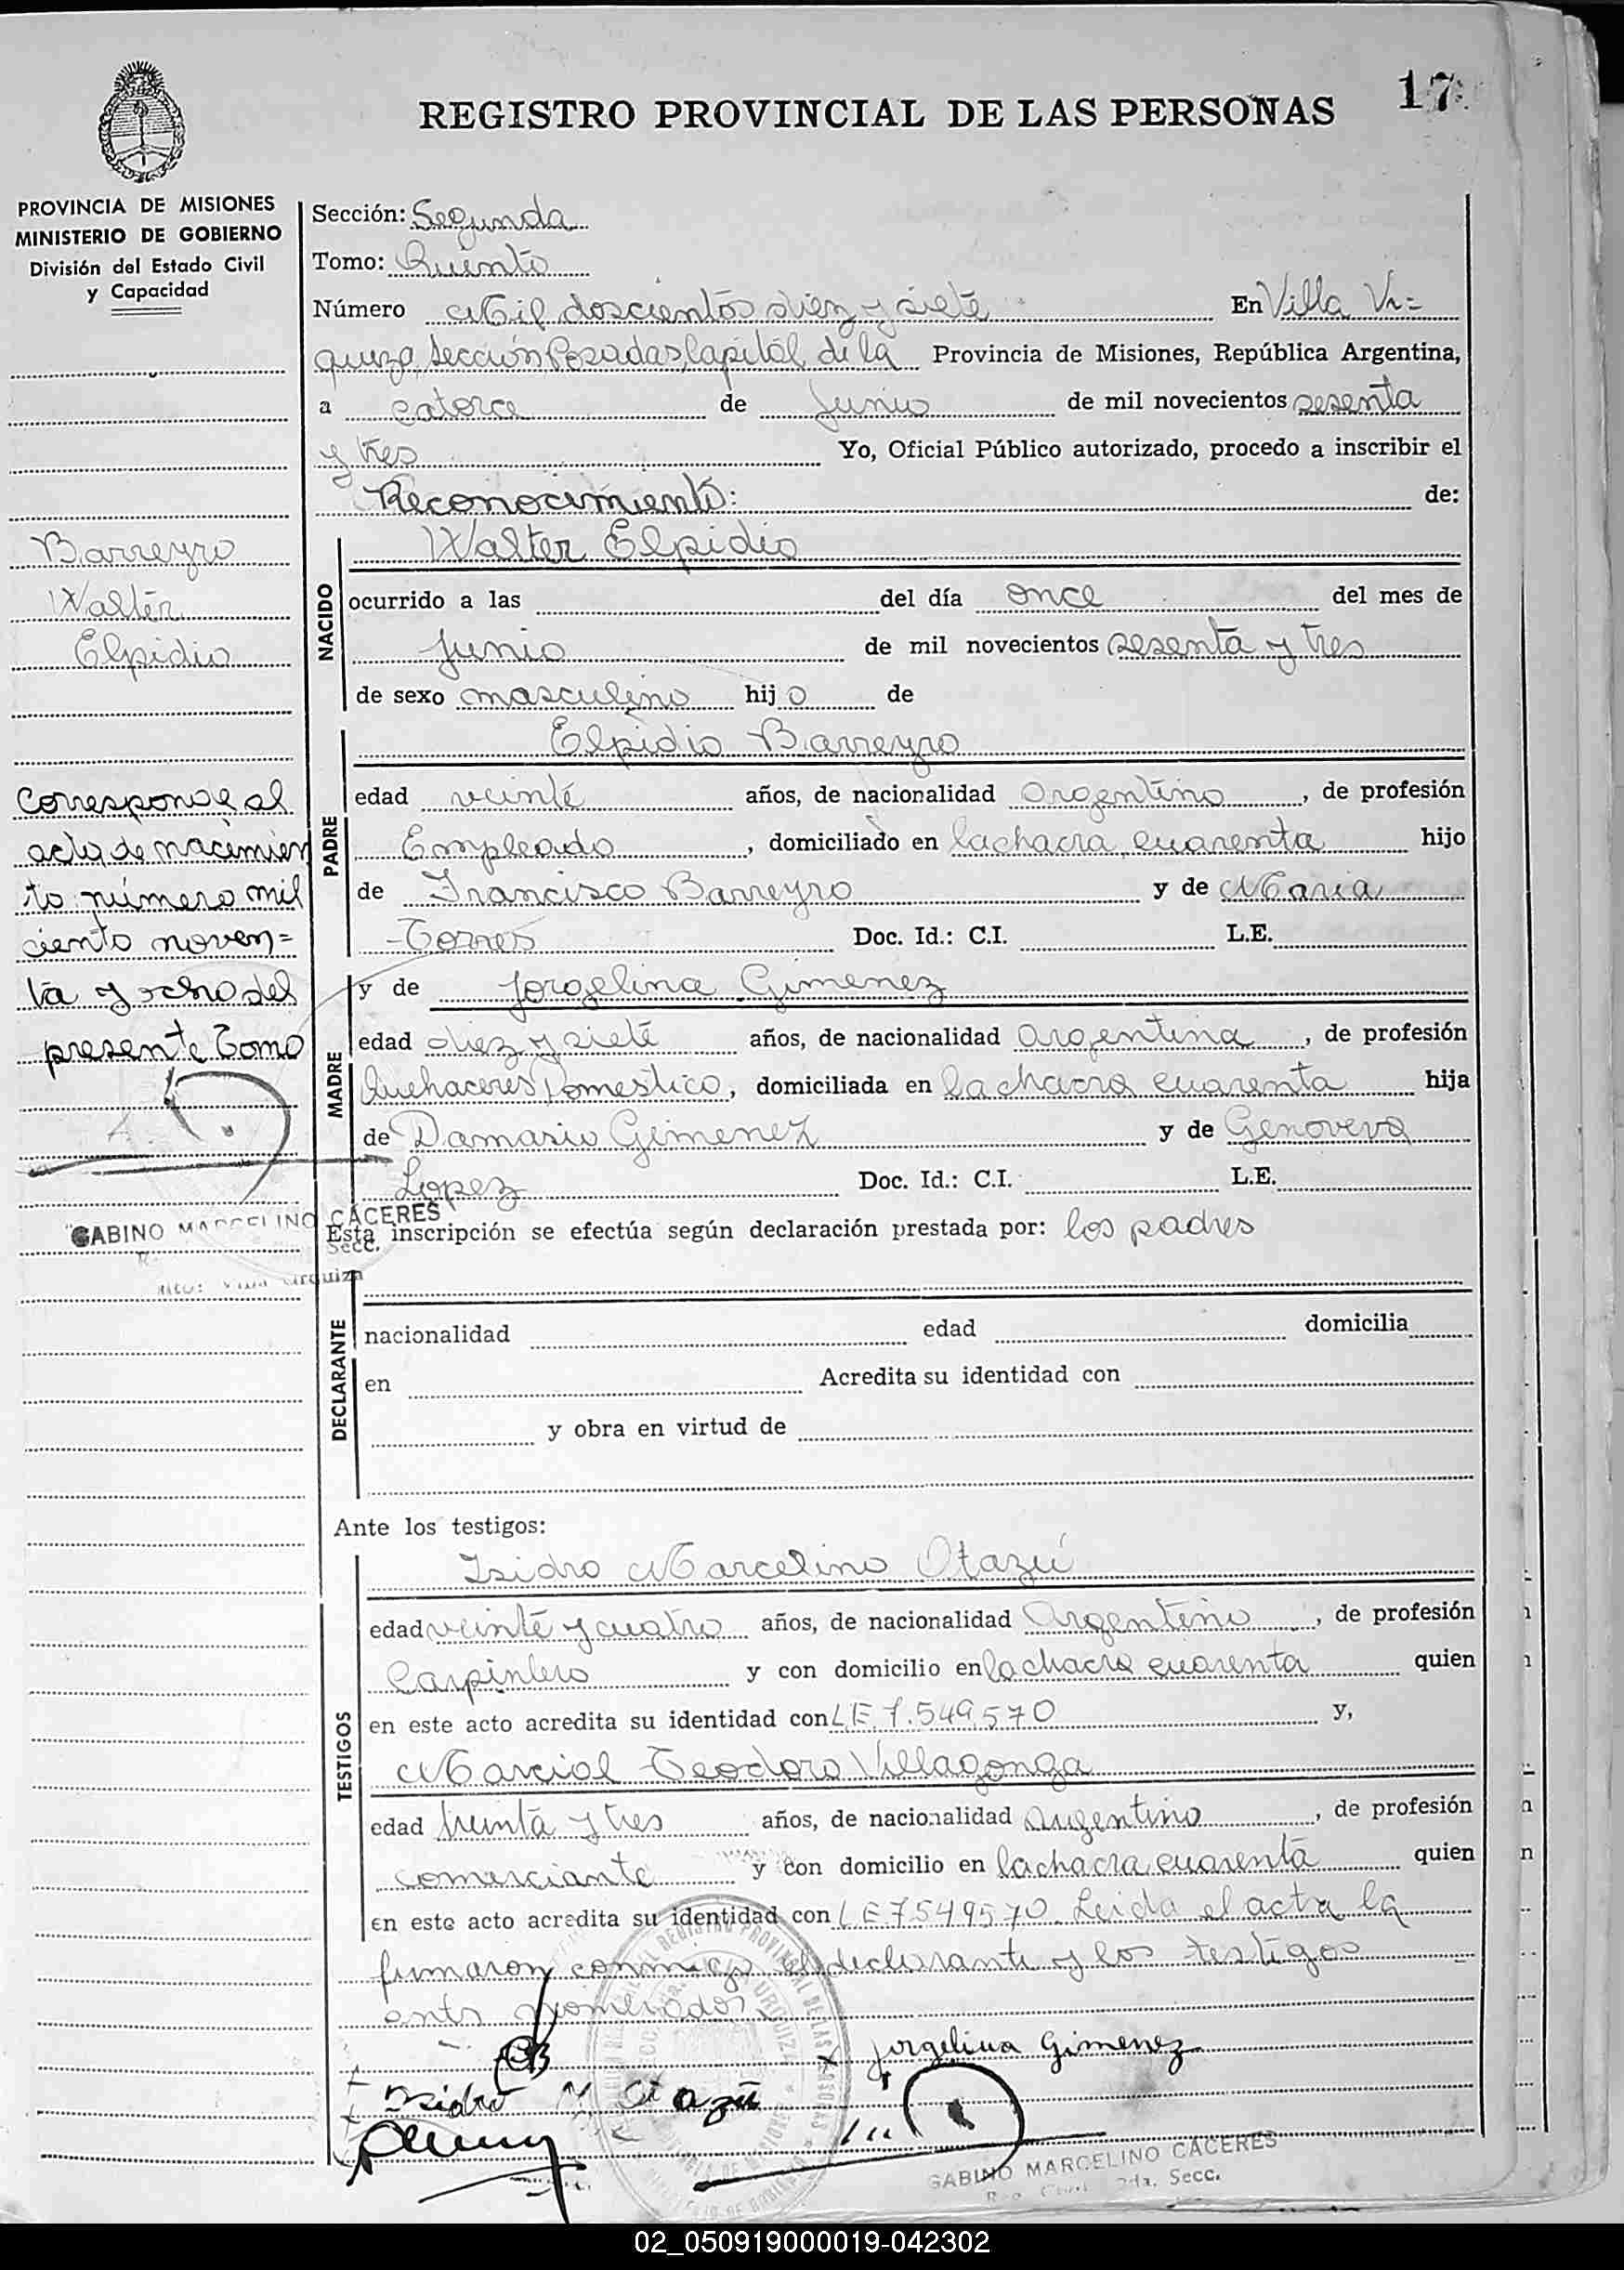 17
REGISTRO PROVINCIAL DE LAS PERSONAS
PROVINCIA DE MISIONES
MINISTERIO DE GOBIERNO
División del Estado Civil
y Capacidad
Barreyro
Walter
Elpidio
Corresponde al
acta de nacimien
to número mil
ciento noven=
ta y ocho del
presente Tomo
GABINO MARCELINO CÁCERES
Secc.
Urquiza
Sección: Segunda
Tomo: Quinto
Número Mil doscientos diez y siete En Villa Ur=
quiza, Sección Posadas, Capital de la Provincia de Misiones, República Argentina,
a catorce de Junio de mil novecientos sesenta
y tres Yo, Oficial Público autorizado, procedo a inscribir el
Reconocimiento: de:
NACIDO
Walter Elpidio
ocurrido a las del día once del mes de
Junio de mil novecientos sesenta y tres
de sexo masculino hijo de
PADRE
Elpidio Barreyro
edad veinte años, de nacionalidad Argentino, de profesión
Empleado, domiciliado en lachacra cuarenta hijo
de Francisco Barreyro y de Maria
Torres Doc. Id.: C.I. L.E.
MADRE
y de Jorgelina Gimenez
edad diez y siete años, de nacionalidad Argentina, de profesión
Quehaceres Domestico, domiciliada en la chacra cuarenta hija
de Damasio Gimenez y de Genoveva
Lopez Doc. Id.: C.I. L.E.
Esta inscripción se efectúa según declaración prestada por: los padres
DECLARANTE
nacionalidad edad domicilia
en Acredita su identidad con
y obra en virtud de
Ante los testigos:
TESTIGOS
Isidro Marcelino Otazú
edad veinte y cuatro años, de nacionalidad Argentino, de profesión
Carpintero y con domicilio en la chacra cuarenta quien
en este acto acredita su identidad con LE 7.549.570 y,
Marcial Teodoro Villagonga
edad treinta y tres años, de nacionalidad Argentino, de profesión
comerciante y con domicilio en lachacra cuarenta quien
en este acto acredita su identidad con LE 7549570. Leida el acta la
firmaron conmigo el declarante y los testigos
ants nomenados
Jorgelina Gimenez
Isidro M Otazú
GABINO MARCELINO CÁCERES
2da. Secc.
02_050919000019-042302